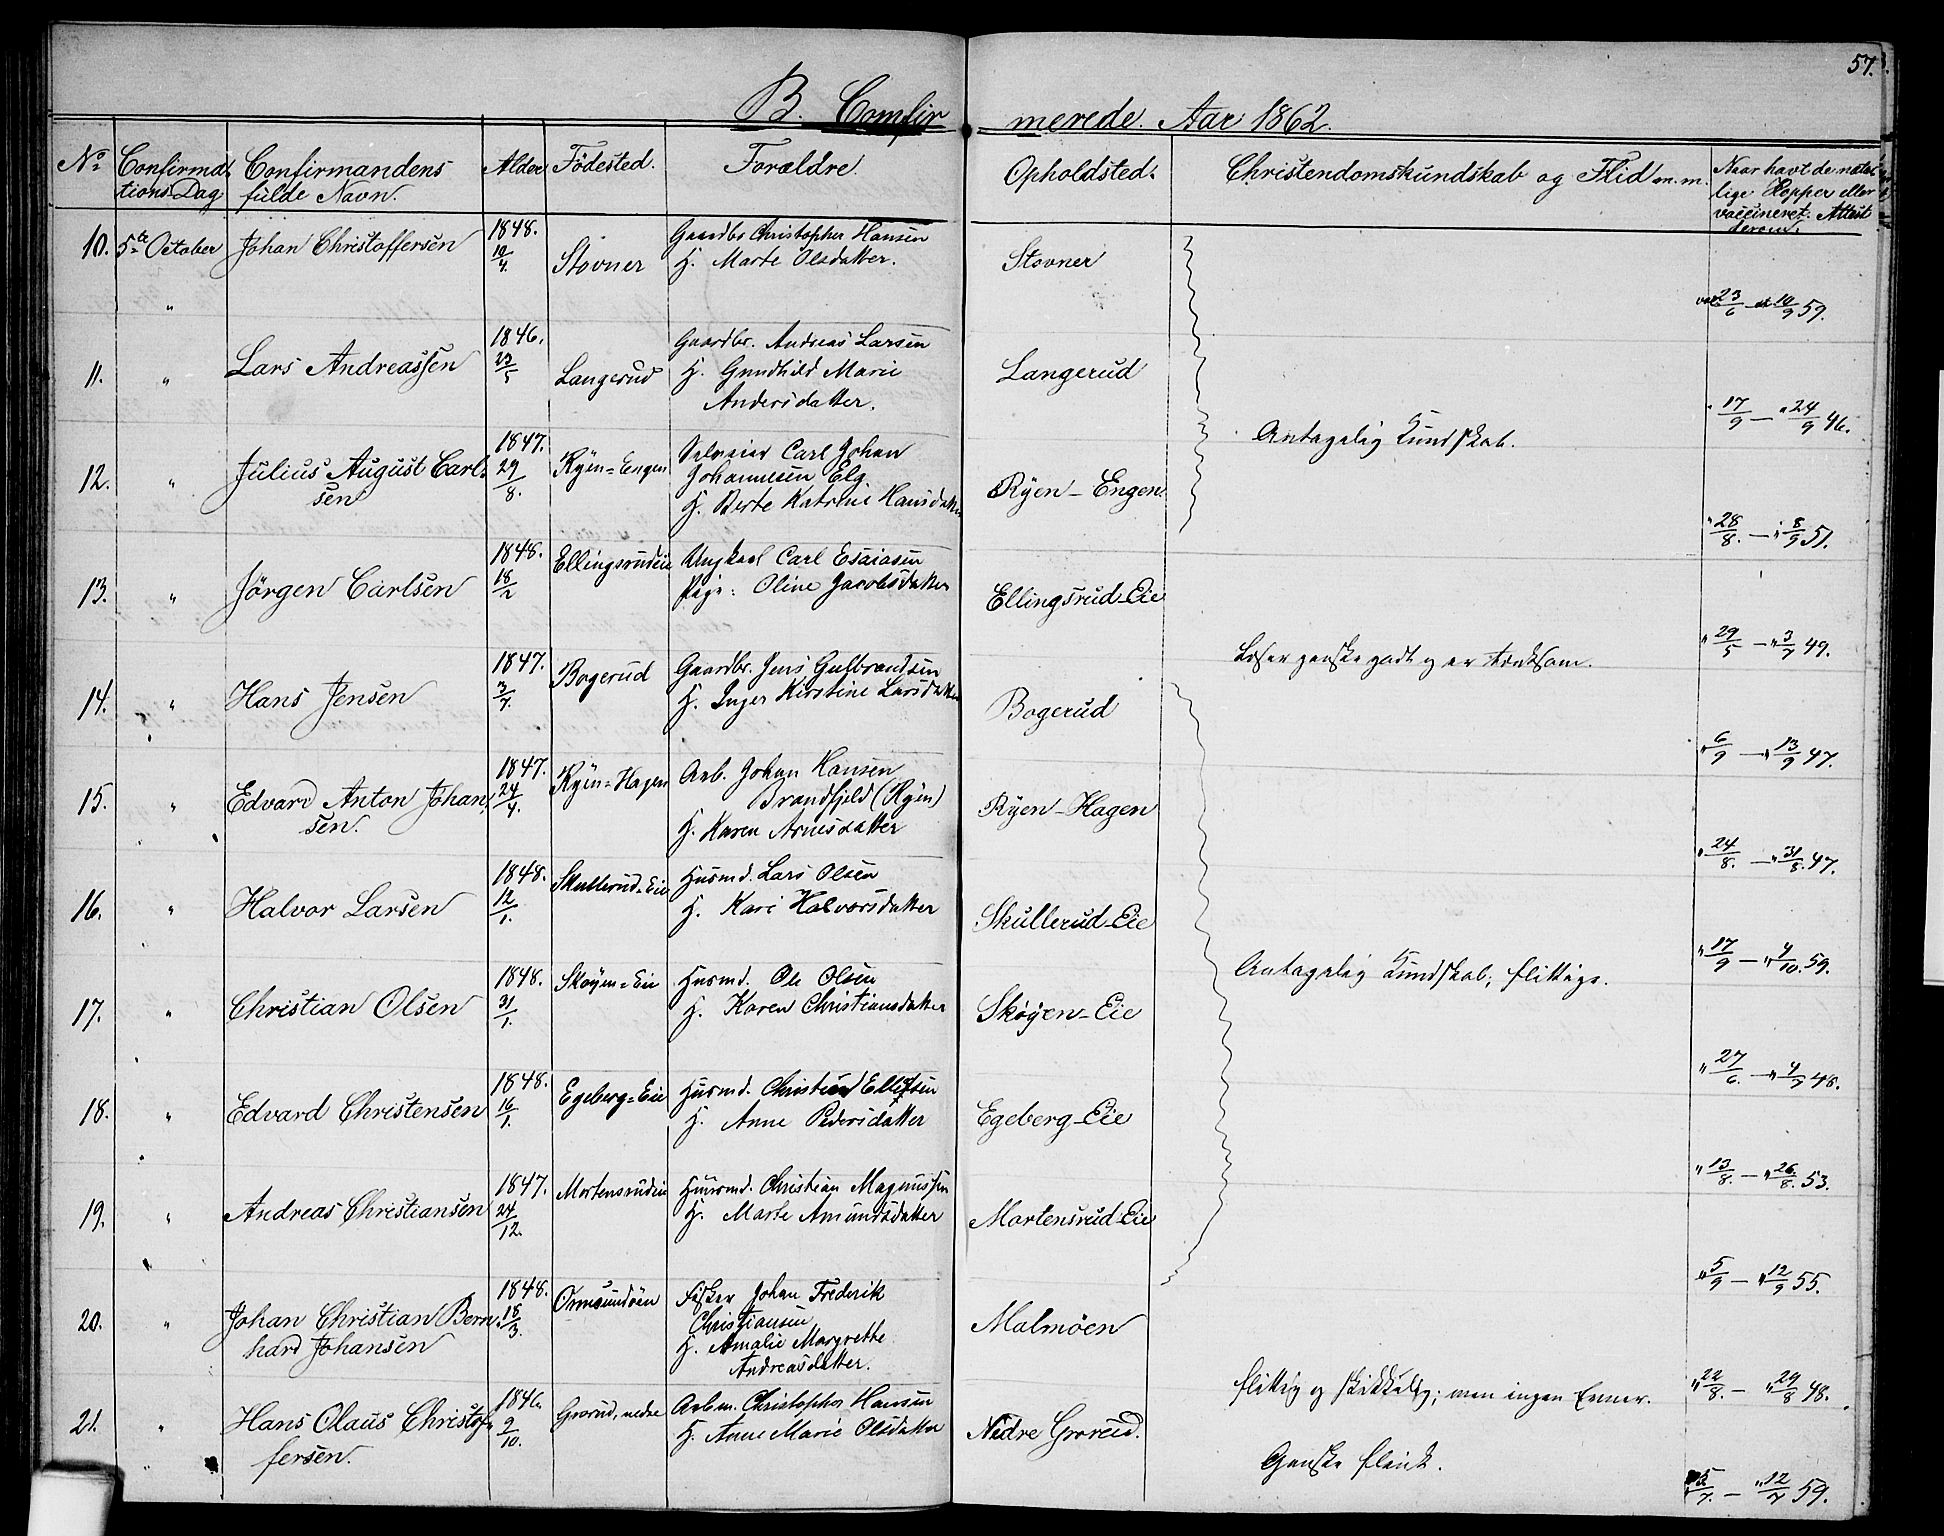 57.
B. Confirmerede. Aar 1862.
No Confirmations Dag. Confirmandens fulde Navn. Alder Födested. Forældre. Opholdsted. Christendomskundskab og Flid m. m. Naar havt de naturlige Kopper eller vaccineret. Attest derom.
10. 5te October Johan Christoffersen 1848. 10/4. Stovner Gaardbr Christopher Hansen Stovner
H. Marte Olsdatter. vac. 23/6 - at 10/9 59.
11. " Lars Andreassen 1846. 23/5 Langerud Gaardbr. Andreas Larsen Langerud
H. Gunhild Marie
Andersdatter. " 17/9 - " 24/9 46.
Antagelig Kundskab.
12. " Julius August Carlsen 1847. 29/8. Ryen=Engen Selveier Carl Johan Ryen-Engen
Johannesen Elg
H. Berte Katrine Hansdatter " 28/8. - " 8/9 51.
13. " Jörgen Carlsen 1848. 18/2 Ellingsrudeie Ungkarl Carl Esaiasen Ellingsrud-Eie
Pige: Oline Jacobsdatter " 29/5 - " 3/7 49.
Læser ganske godt og er tænksom.
14. " Hans Jensen 1847. 3/7. Bogerud Gaardbr. Jens Gulbrandsen Bogerud
H. Inger Kirstine Larsdatter " 6/9 - " 13/9 47.
15. " Edvard Anton Johansen. 1847. 24/4. Ryen=Hagen Arb. Johan Hansen Ryen-Hagen
Brandfjeld (Ryen)
H. Karen Arnesdatter " 24/8. - " 31/8. 47.
16. " Halvor Larsen 1848. 12/1. Skullerud=Eie Husmd. Lars Olsen Skullerud-Eie
H. Kari Halvorsdatter " 17/9 - " 4/10. 59.
Antagelig Kundskab, flittige.
17. " Christian Olsen 1848. 31/1. Skøyen=Eie Husmd. Ole Olsen Skøyen-Eie
H. Karen Christiansdatter " 27/6. - " 4/7 48.
18. " Edvard Christensen 1848. 16/1. Egeberg=Eie Husmd. Christian Ellefsen Egeberg-Eie
H. Anne Pedersdatter " 13/8. - " 26/8. 53.
19. " Andreas Christiansen 1847. 24/12. Mortensrudeie Husmd. Christian Magnussen Mortensrud-Eie
H. Marte Amundsdatter " 5/9 - " 12/9 55.
20. " Johan Christian Bernhard Johansen 1848. 18/3. Ormsundöen Fisker Johan Frederik Malmöen
Christiansen
H. Amalie Margrethe
Andreasdatter. " 22/8. - " 29/8 48.
flittig og skikkelig; men ingen Evner.
21. " Hans Olaus Christoffersen. 1846. 9/10. Grorud, nedre Arbm. Christopher Hansen Nedre Grorud.
H. Anne Marie Olsdatter
Ganske flink. 5/7. - " 12/7 59.